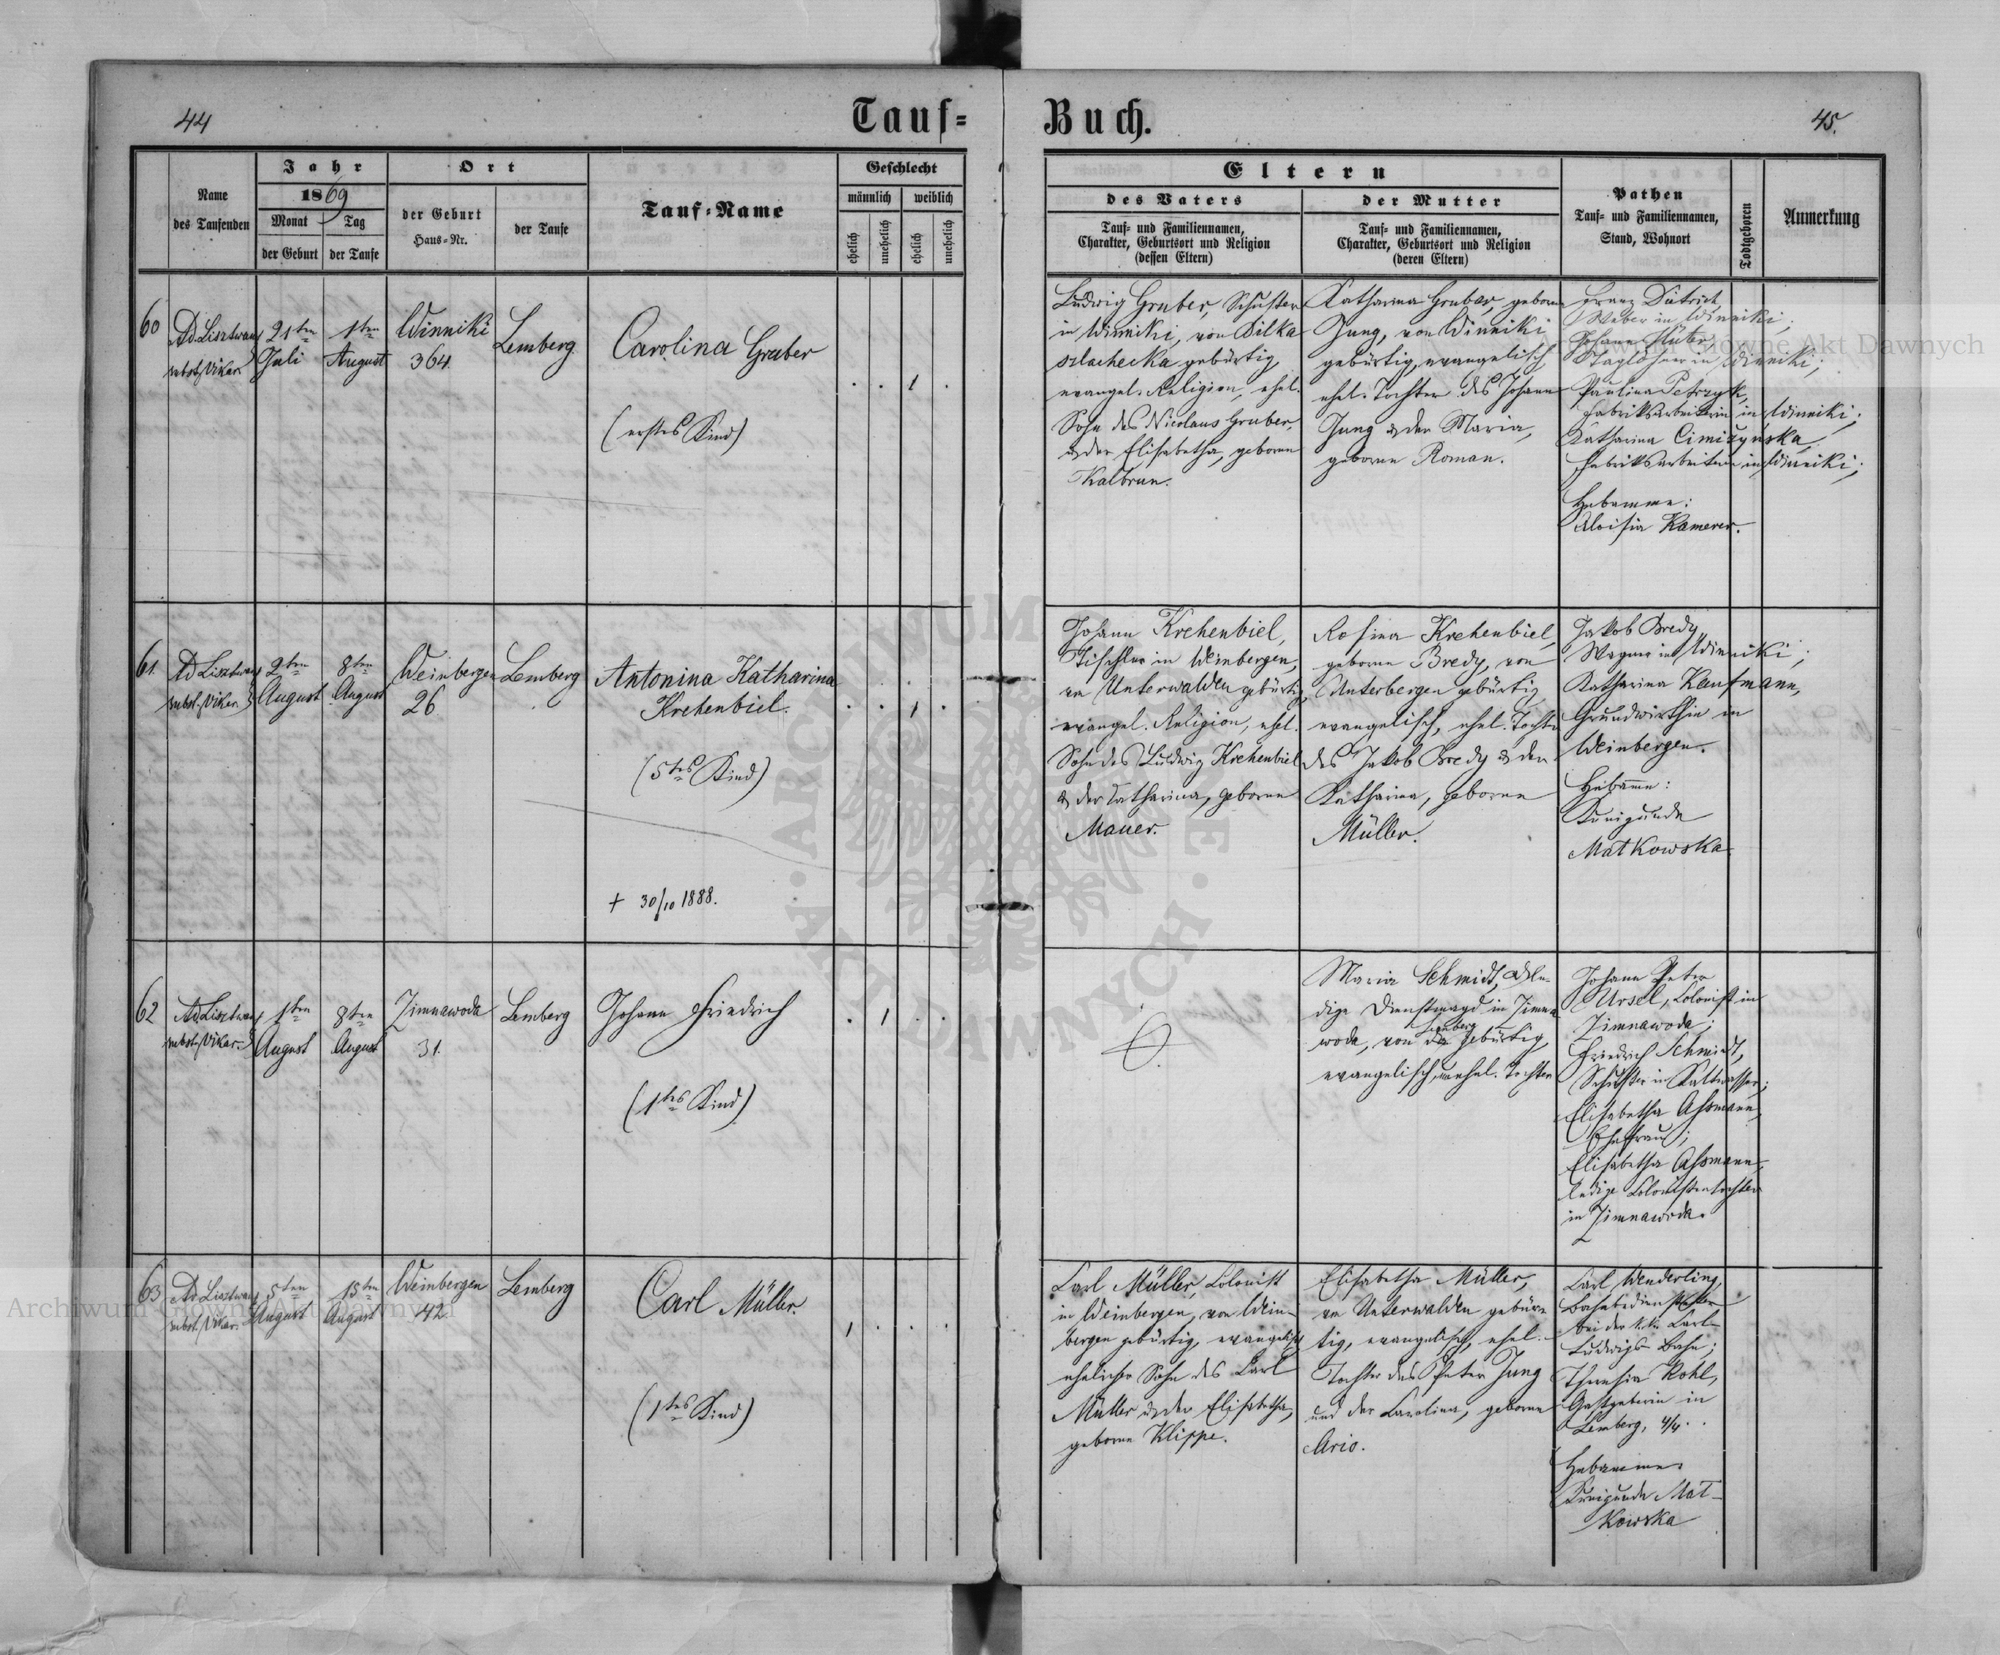 44
Tauf=
Buch.
45.
Name
des Taufenden
Jahr
1869
Monat
Tag
der Geburt
der Taufe
Ort
der Geburt
Haus=Nr.
der Taufe
Tauf=Name
Geschlecht
männlich
weiblich
ehelich
unehelich
ehelich
unehelich
Eltern
des Vaters
Tauf= und Familiennamen,
Charakter, Geburtsort und Religion
(dessen Eltern)
der Mutter
Tauf= und Familiennamen,
Charakter, Geburtsort und Religion
(deren Eltern)
Pathen
Tauf= und Familiennamen,
Stand, Wohnort
Todtgeboren
Anmerkung
60
Ad. Lisztwan
subst. Vikar
21ten
Juli
1ten
August
Winniki
364.
Lemberg
Carolina Gruber
(erstes Kind)
. . 1 .
Ludwig Gruber, Schuster
in Winniki, von Bilka
szlachecka gebürtig
evangel. Religion, ehel.
Sohn des Nicolaus Gruber,
& der Elisabetha, geborne
Kalbrun.
Katharina Gruber, geborne
Jung, von Winniki
gebürtig, evangelisch
ehel. Tochter des Johann
Jung & der Maria,
geborne Roman.
Franz Dietrich
Weber in Winniki;
Johann Huber
Taglöhner in Winniki;
Paulina Petrzyk,
Fabriksarbeiterin in Winniki;
Katharina Cimizynska,
Fabriksarbeiterin in Winniki;
Hebamme:
Aloisia Kamerer.
61.
Ad. Lisztwan
subst. Vikar.
2ten
August
8ten
August
Weinbergen
26
Lemberg
Antonina Katharina
Krehenbiel.
(5tes Kind)
+ 30/10 1888.
. . 1 .
Johann Krehenbiel,
Tischler in Weinbergen,
von Unterwalden gebürtig
evangel. Religion, ehel.
Sohn des Ludwig Krehenbiel
& der Catharina, geborne
Mauer.
Rosina Krehenbiel,
geborne Bredy, von
Unterbergen gebürtig
evangelisch, ehel. Tochter
des Jakob Bredy & der
Katharina, geborne
Müller.
Jakob Bredy
Wagner in Winniki;
Katharina Kaufmann,
Grundwirthin in
Weinbergen.
Hebamme:
Kunigunde
Matkowska.
62
Ad. Lisztwan
subst. Vikar.
1ten
August
8ten
August
Zimnawoda
31.
Lemberg
Johann Friedrich
(1tes Kind)
. 1 . .
Maria Schmidt, le-
dige Dienstmagd in Zimna
woda, von Lemberg gebürtig,
evangelisch, unehel. Tochter
Johann Peter
Ursel, Colonist in
Zimnawoda;
Friedrich Schmidt,
Schuster in Kaltwasser;
Elisabetha Assmann,
Ehefrau;
Elisabetha Assmann,
ledige Colonistentochter
in Zimnawoda.
63
Ad. Lisztwan
subst. Vikar.
5ten
August
15ten
August
Weinbergen
42
Lemberg
Carl Müller
(1tes Kind)
1 . . .
Carl Müller, Colonist
in Weinbergen, von Wein-
bergen gebürtig, evangelisch
ehelicher Sohn des Carl
Müller & der Elisabetha,
geborne Klippe.
Elisabetha Müller,
von Unterwalden gebür-
tig, evangelisch, ehel.
Tochter des Peter Jung
und der Carolina, geborne
Ario.
Carl Wenderling,
Bahnbediensteter
bei der k.k. Carl
Ludwigs Bahn;
Theresia Kohl,
Gastgeberin in
Lemberg, 4/4.
Hebamme
Kunigunde Mat-
kowska
Archiwum Główne Akt Dawnych
Archiwum Główne Akt Dawnych
ARCHIWUM GŁÓWNE AKT DAWNYCH